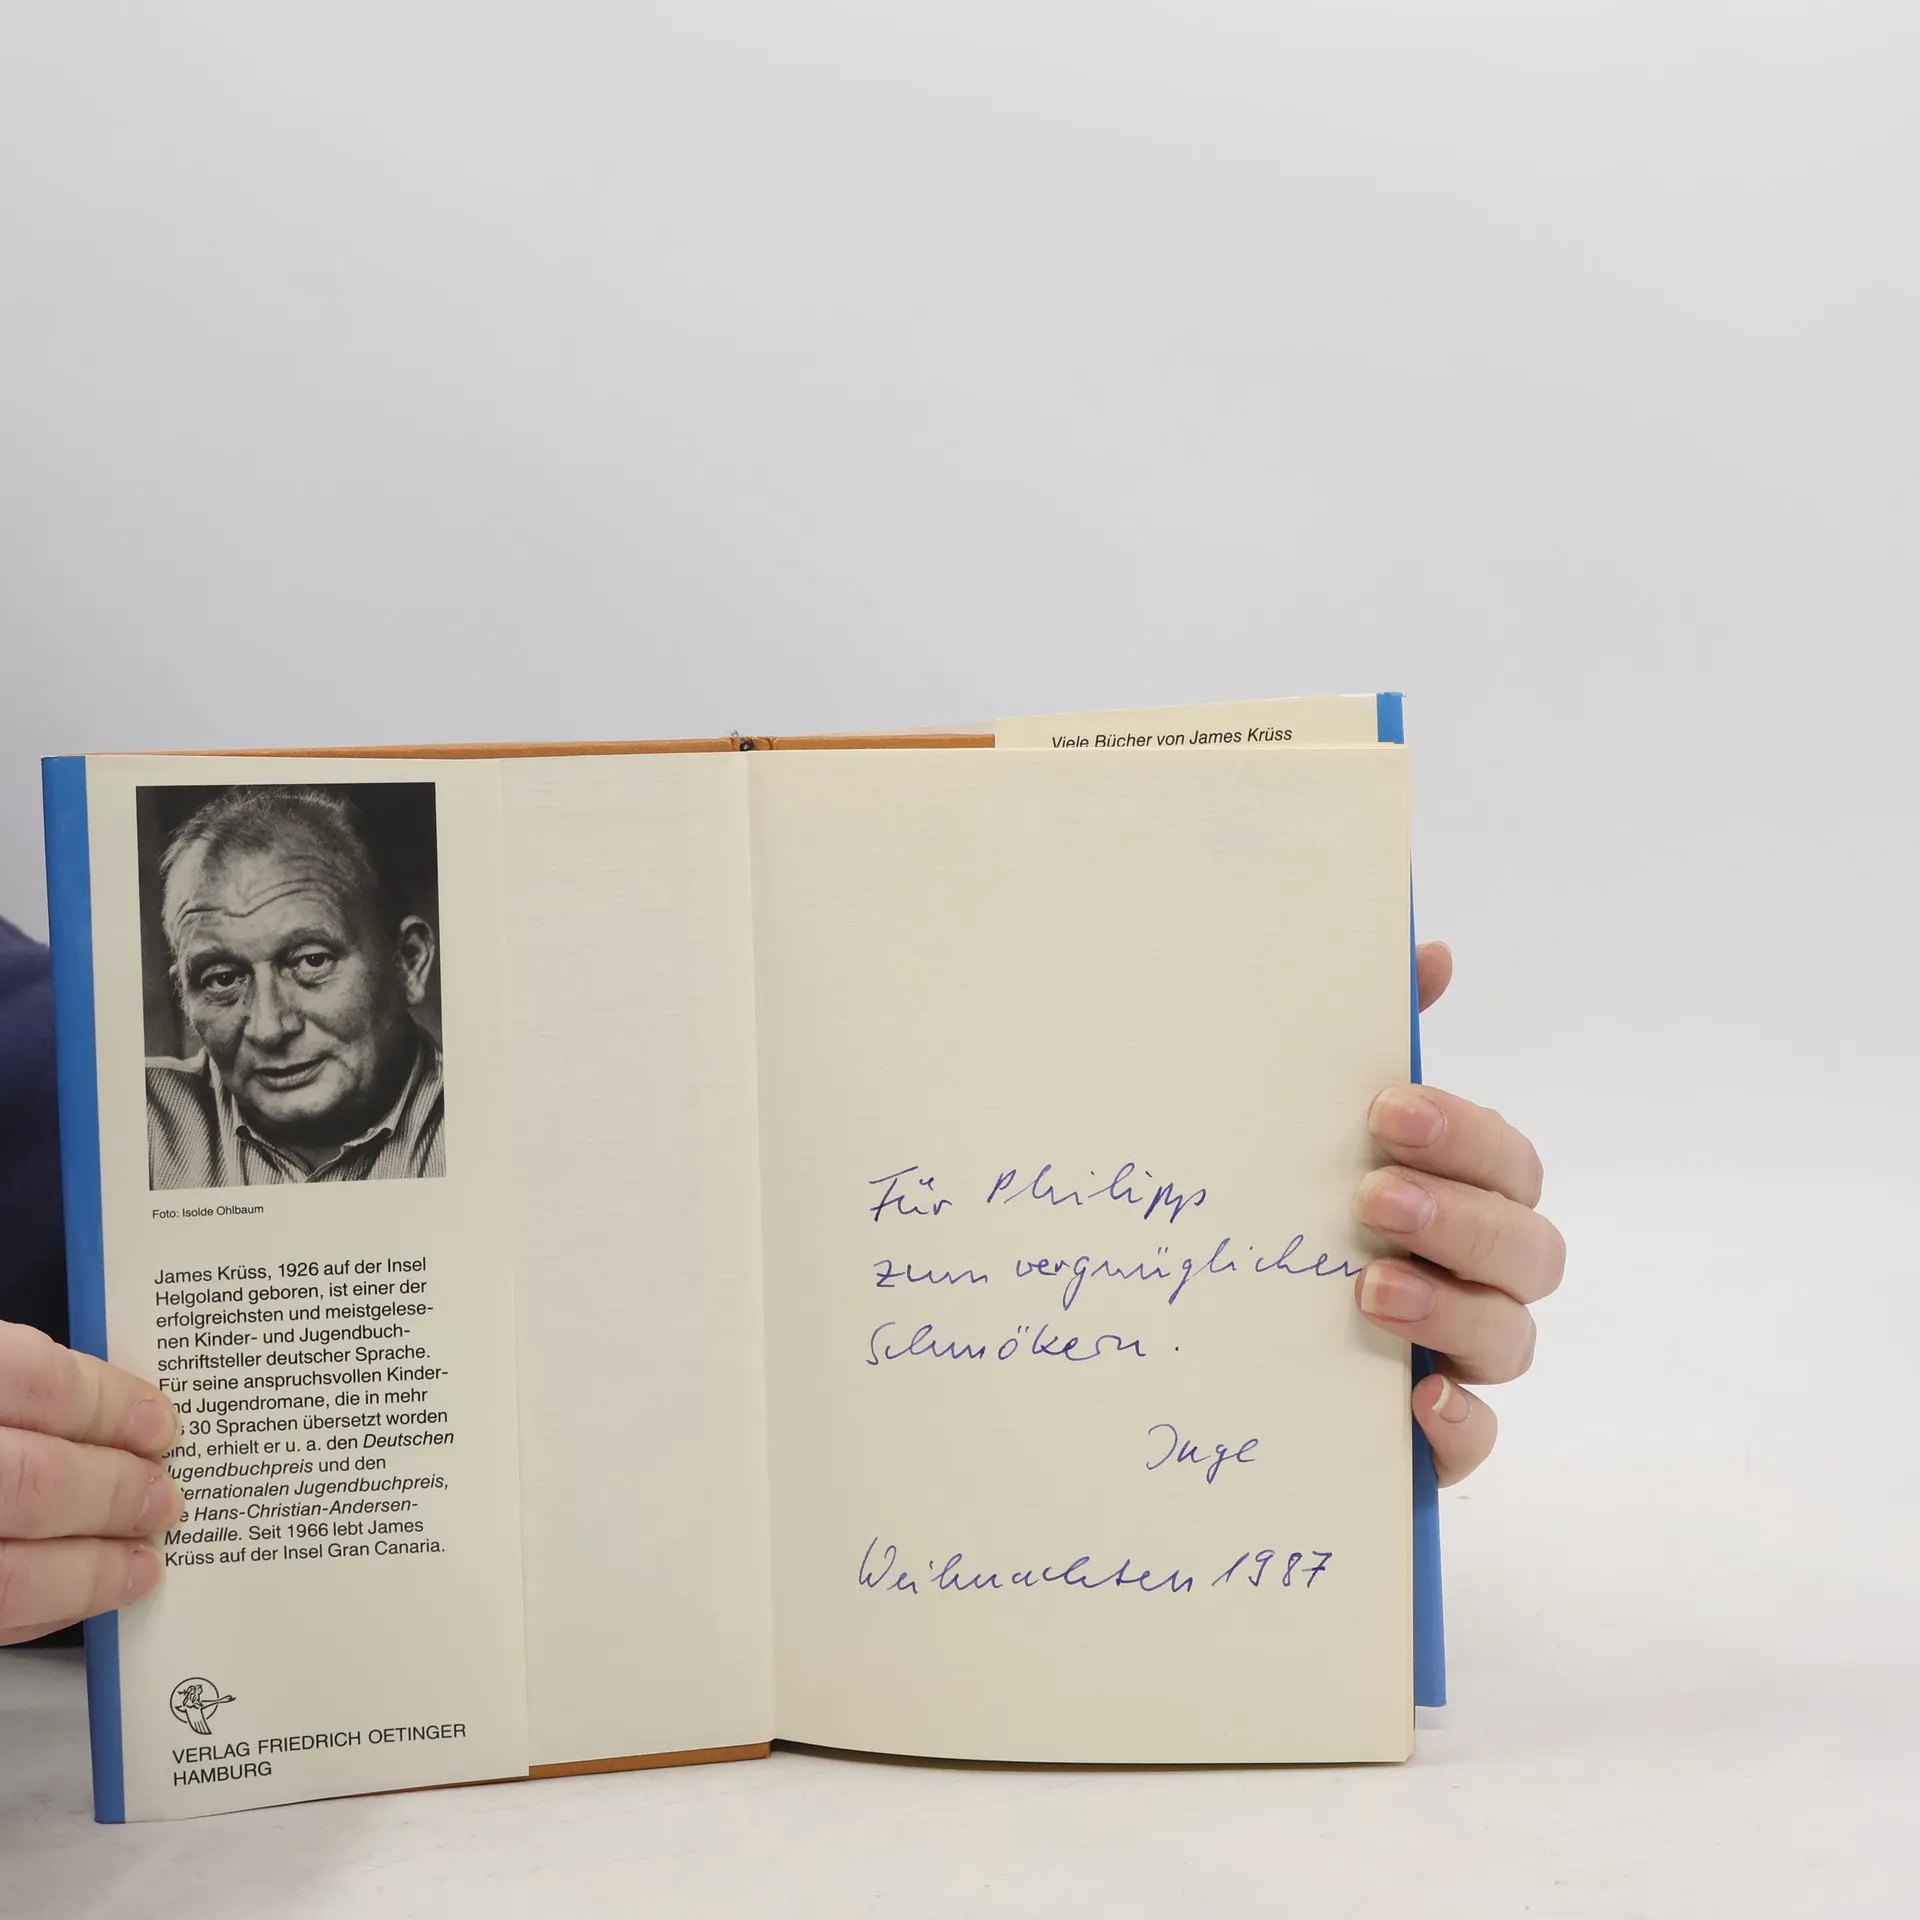 Viele Bücher von James Krüss
Foto: Isolde Ohlbaum
James Krüss, 1926 auf der Insel
Helgoland geboren, ist einer der
erfolgreichsten und meistgelese-
nen Kinder- und Jugendbuch-
schriftsteller deutscher Sprache.
Für seine anspruchsvollen Kinder-
nd Jugendromane, die in mehr
s 30 Sprachen übersetzt worden
sind, erhielt er u. a. den Deutschen
Jugendbuchpreis und den
ternationalen Jugendbuchpreis,
e Hans-Christian-Andersen-
Medaille. Seit 1966 lebt James
Krüss auf der Insel Gran Canaria.
VERLAG FRIEDRICH OETINGER
HAMBURG
Für Philipp
zum vergnüglichen
Schmökern.
Inge
Weihnachten 1987